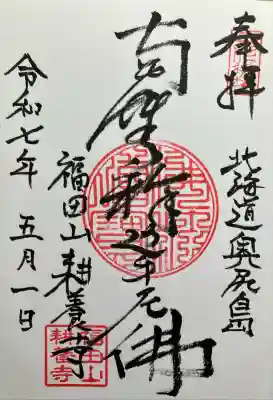 奉拝
北海道奥尻島
南無釋迦牟尼佛
福田山耕養寺
令和七年 五月一日
福田山
耕養寺